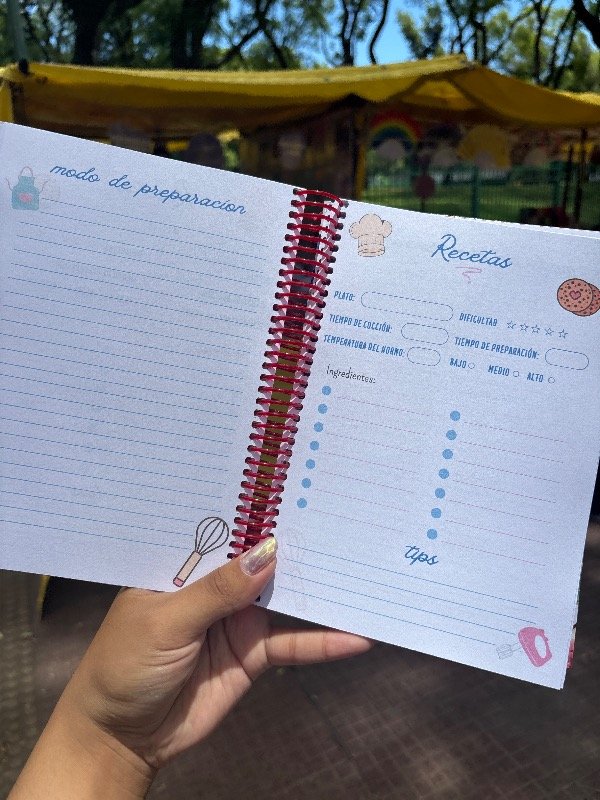 modo de preparacion
Recetas
PLATO:
DIFICULTAD
TIEMPO DE COCCIÓN:
TIEMPO DE PREPARACIÓN:
TEMPERATURA DEL HORNO:
BAJO MEDIO ALTO
Ingredientes:
tips